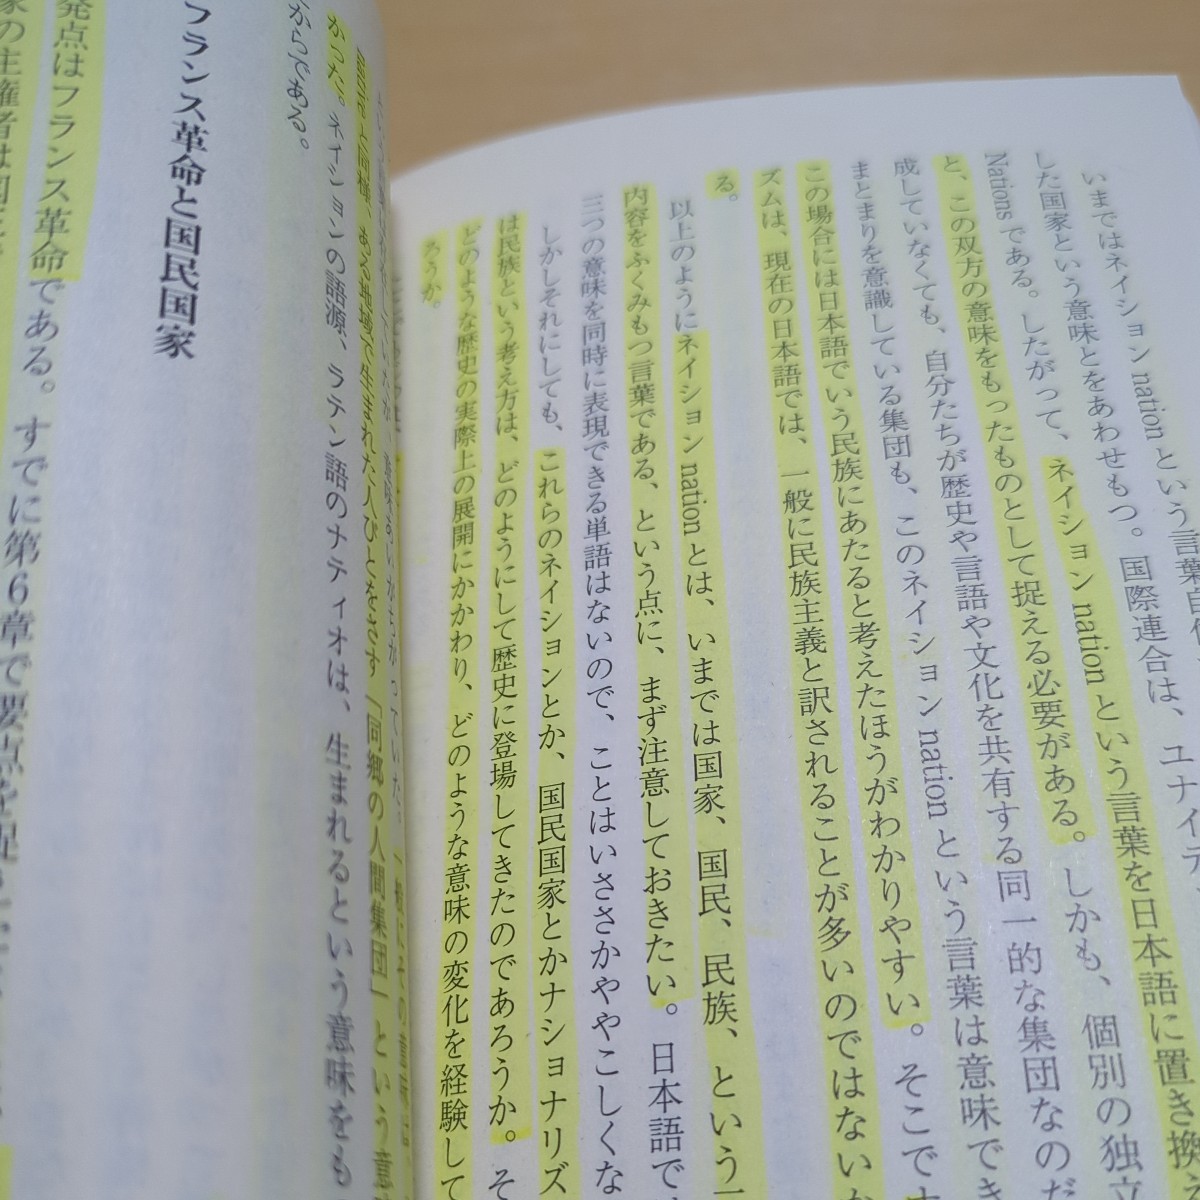 いまではネイション nation という言葉自
した国家という意味とをあわせもつ。国際連合は、ユナイテ
Nations である。したがって、ネイション nation という言葉を日本語に置き換
と、この双方の意味をもったものとして捉える必要がある。しかも、個別の独立
成していなくても、自分たちが歴史や言語や文化を共有する同一的な集団なのだ
まとまりを意識している集団も、このネイション nation という言葉は意味でき
この場合には日本語でいう民族にあたると考えたほうがわかりやすい。そこで
ズムは、現在の日本語では、一般に民族主義と訳されることが多いのではない
る。
以上のようにネイション nation とは、いまでは国家、国民、民族、という
内容をふくみもつ言葉である、という点に、まず注意しておきたい。日本語で
三つの意味を同時に表現できる単語はないので、ことはいささかややこしくな
しかしそれにしても、これらのネイションとか、国民国家とかナショナリズ
は民族という考え方は、どのようにして歴史に登場してきたのであろうか。そ
どのような歴史の実際上の展開にかかわり、どのような意味の変化を経験して
ろうか。
と同様、ある地域で生まれた人びとをさす「同郷の人間集団」という意
かった。ネイションの語源、ラテン語のナティオは、生まれるという意味をも
からである。
フランス革命と国民国家
発点はフランス革命である。すでに第6章で要点を
家の主権者は国民